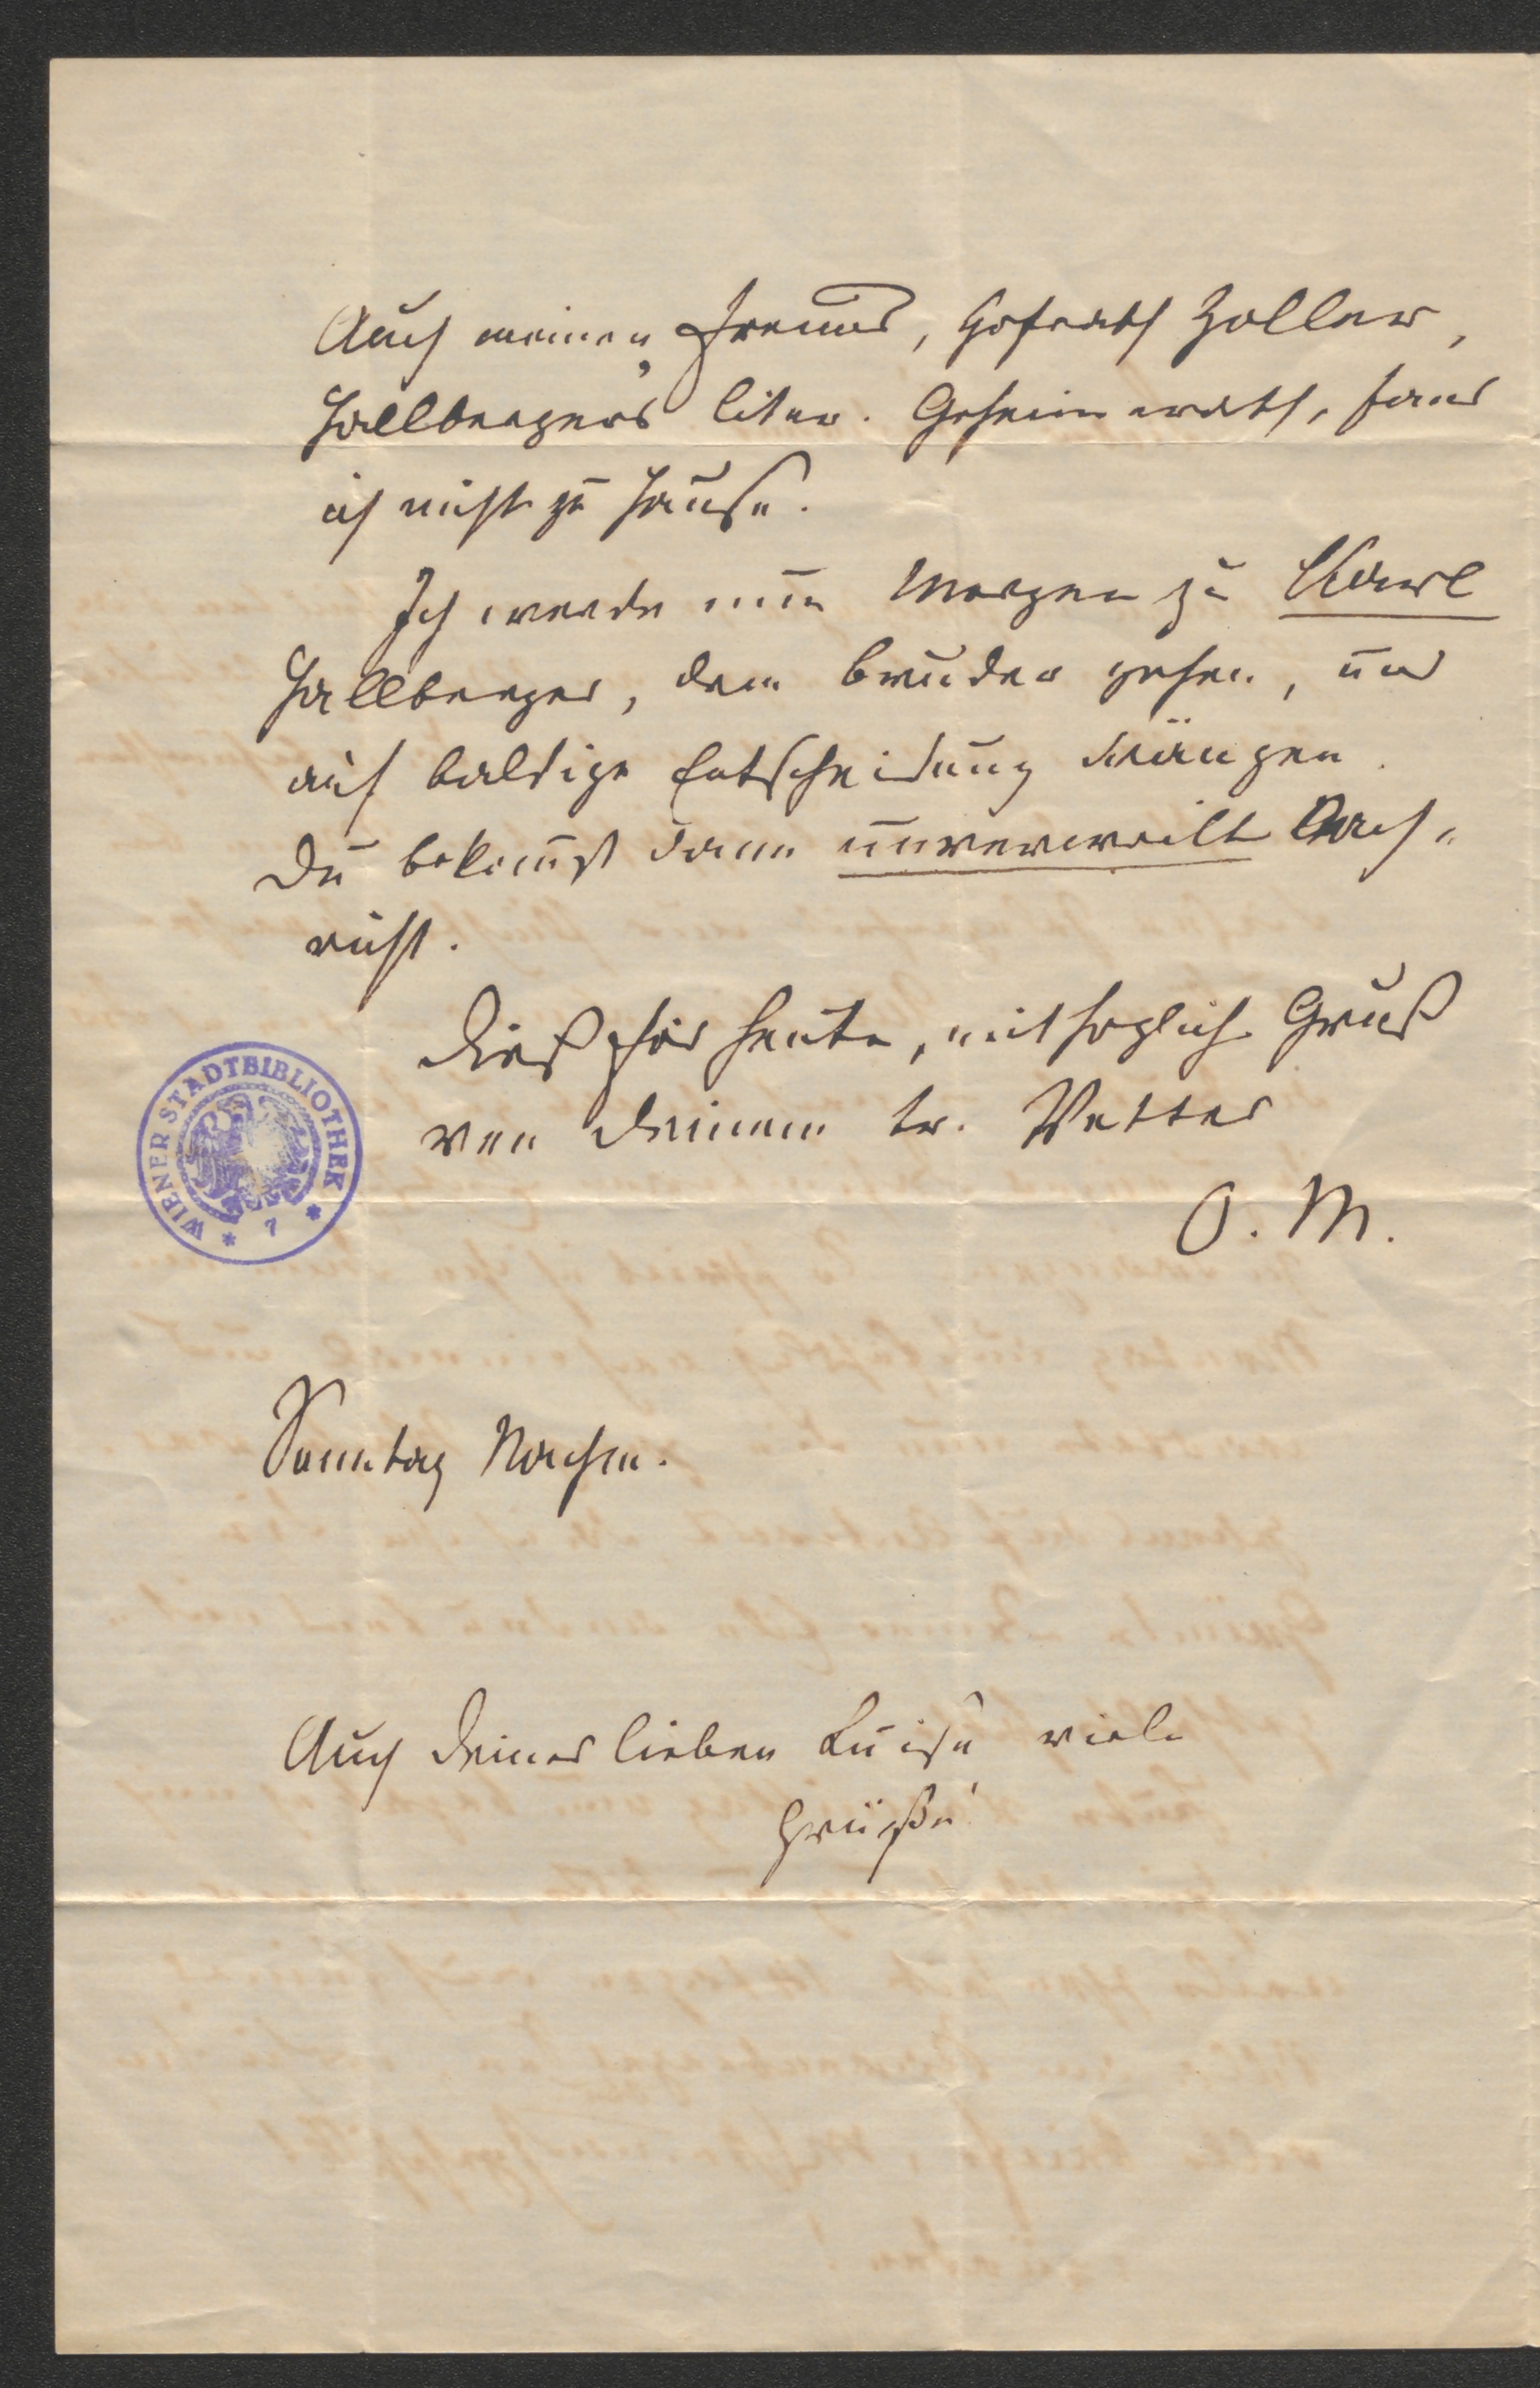 Auch meinen Freund, Hofrath Zoller,
Hallbergers liter. Geheimerath, fand
ich nicht zu Hause.
Ich werde nun Morgen zu Karl
Hallberger, dem Bruder gehen, und
auf baldige Entscheidung drängen.
Du bekommst dann unverweilt Nach-
richt.
Dieß für heute, mit herzlich. Gruß
von Deinem tr. Vetter
O. M.
WIENER STADTBIBLIOTHEK
* 7 *
Sonntag Nachm.
Auch Deiner lieben Luise viele
Grüße!